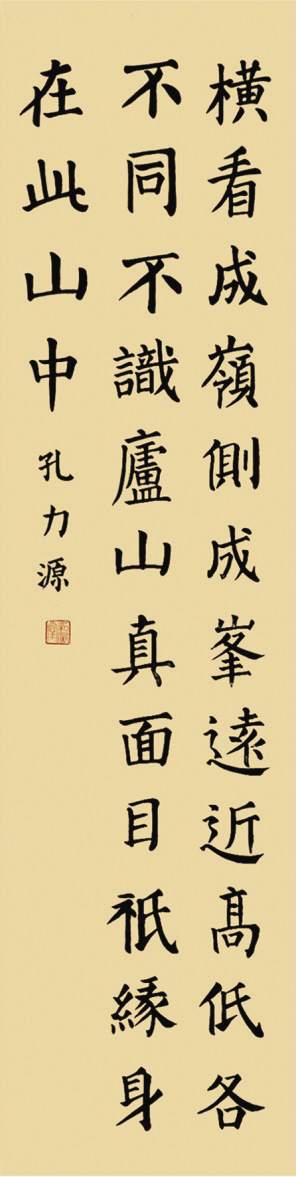 橫看成嶺側成峯遠近髙低各
不同不識廬山真面目祇緣身
在此山中
孔力源